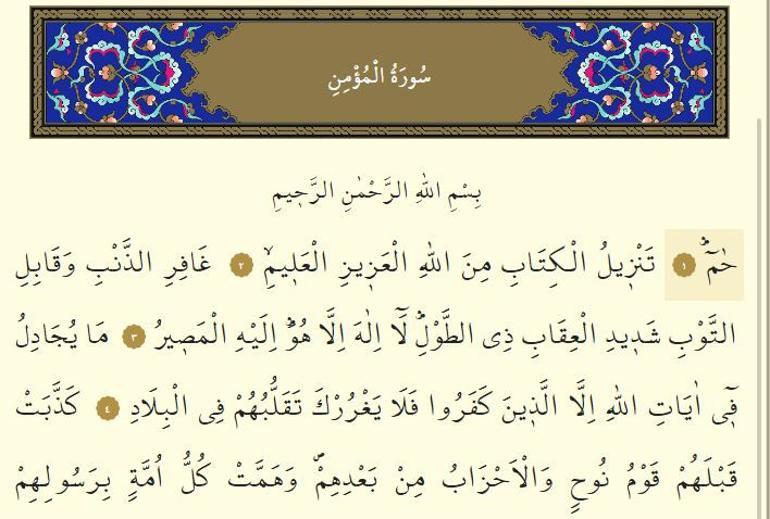 سُورَةُ الْمُؤْمِنِ
بِسْمِ اللّٰهِ الرَّحْمٰنِ الرَّح۪يمِ
حٰمٓۚ ﴿١﴾ تَنْز۪يلُ الْكِتَابِ مِنَ اللّٰهِ الْعَز۪يزِ الْعَل۪يمِۙ ﴿٢﴾ غَافِرِ الذَّنْبِ وَقَابِلِ
التَّوْبِ شَد۪يدِ الْعِقَابِ ذِي الطَّوْلِۜ لَٓا اِلٰهَ اِلَّا هُوَۜ اِلَيْهِ الْمَص۪يرُ ﴿٣﴾ مَا يُجَادِلُ
ف۪ٓي اٰيَاتِ اللّٰهِ اِلَّا الَّذ۪ينَ كَفَرُوا فَلَا يَغْرُرْكَ تَقَلُّبُهُمْ فِي الْبِلَادِ ﴿٤﴾ كَذَّبَتْ
قَبْلَهُمْ قَوْمُ نُوحٍ وَالْاَحْزَابُ مِنْ بَعْدِهِمْۖ وَهَمَّتْ كُلُّ اُمَّةٍ بِرَسُولِهِمْ